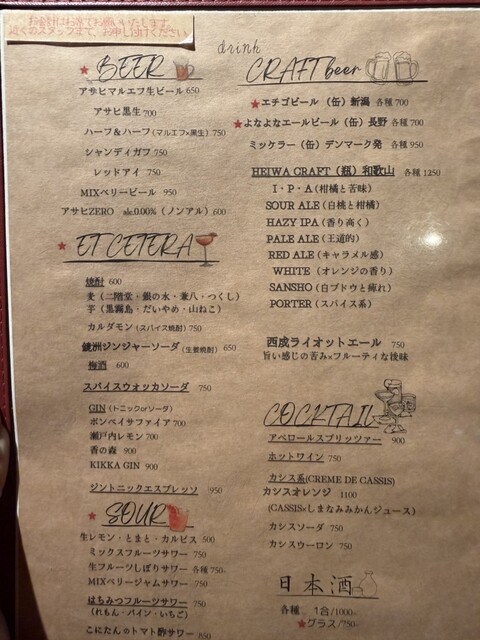 お会計はお席でお願いいたします。
近くのスタッフまで、お申し付けください
drink
★ BEER
アサヒマルエフ生ビール 650
アサヒ黒生 700
ハーフ&ハーフ(マルエフ×黒生) 750
シャンディガフ 750
レッドアイ 750
MIXベリービール 950
アサヒZERO alc.0.00% (ノンアル) 600
★ ET CETERA
焼酎 600
麦(二階堂・銀の水・兼八・つくし)
芋(黒霧島・だいやめ・山ねこ)
カルダモン(スパイス焼酎) 750
鏡洲ジンジャーソーダ(生姜焼酎) 650
梅酒 600
スパイスウォッカソーダ 750
GIN(トニックorソーダ)
ボンベイサファイア 700
瀬戸内レモン 700
香の森 900
KIKKA GIN 900
ジントニックエスプレッソ 950
★ SOUR
生レモン・とまと・カルピス 500
ミックスフルーツサワー 750
生フルーツしぼりサワー 各種 750
MIXベリージャムサワー 750
はちみつフルーツサワー 750
(れもん・パイン・いちご)
こにたんのトマト酢サワー 850
CRAFT beer
★エチゴビール (缶) 新潟 各種 700
★よなよなエールビール (缶) 長野 各種 700
ミッケラー (缶) デンマーク発 各種 950
HEIWA CRAFT (瓶) 和歌山 各種 1250
I・P・A (柑橘と苦味)
SOUR ALE (白桃と柑橘)
HAZY IPA (香り高く)
PALE ALE (王道的)
RED ALE (キャラメル感)
WHITE (オレンジの香り)
SANSHO (白ブドウと痺れ)
PORTER (スパイス系)
西成ライオットエール 750
旨い感じの苦み×フルーティな後味
COCKTAIL
アペロールスプリッツァー 900
ホットワイン 750
カシス系(CREME DE CASSIS)
カシスオレンジ 1100
(CASSIS×しまなみみかんジュース)
カシスソーダ 750
カシスウーロン 750
日本酒
各種... 1合/1000~
★グラス/750~